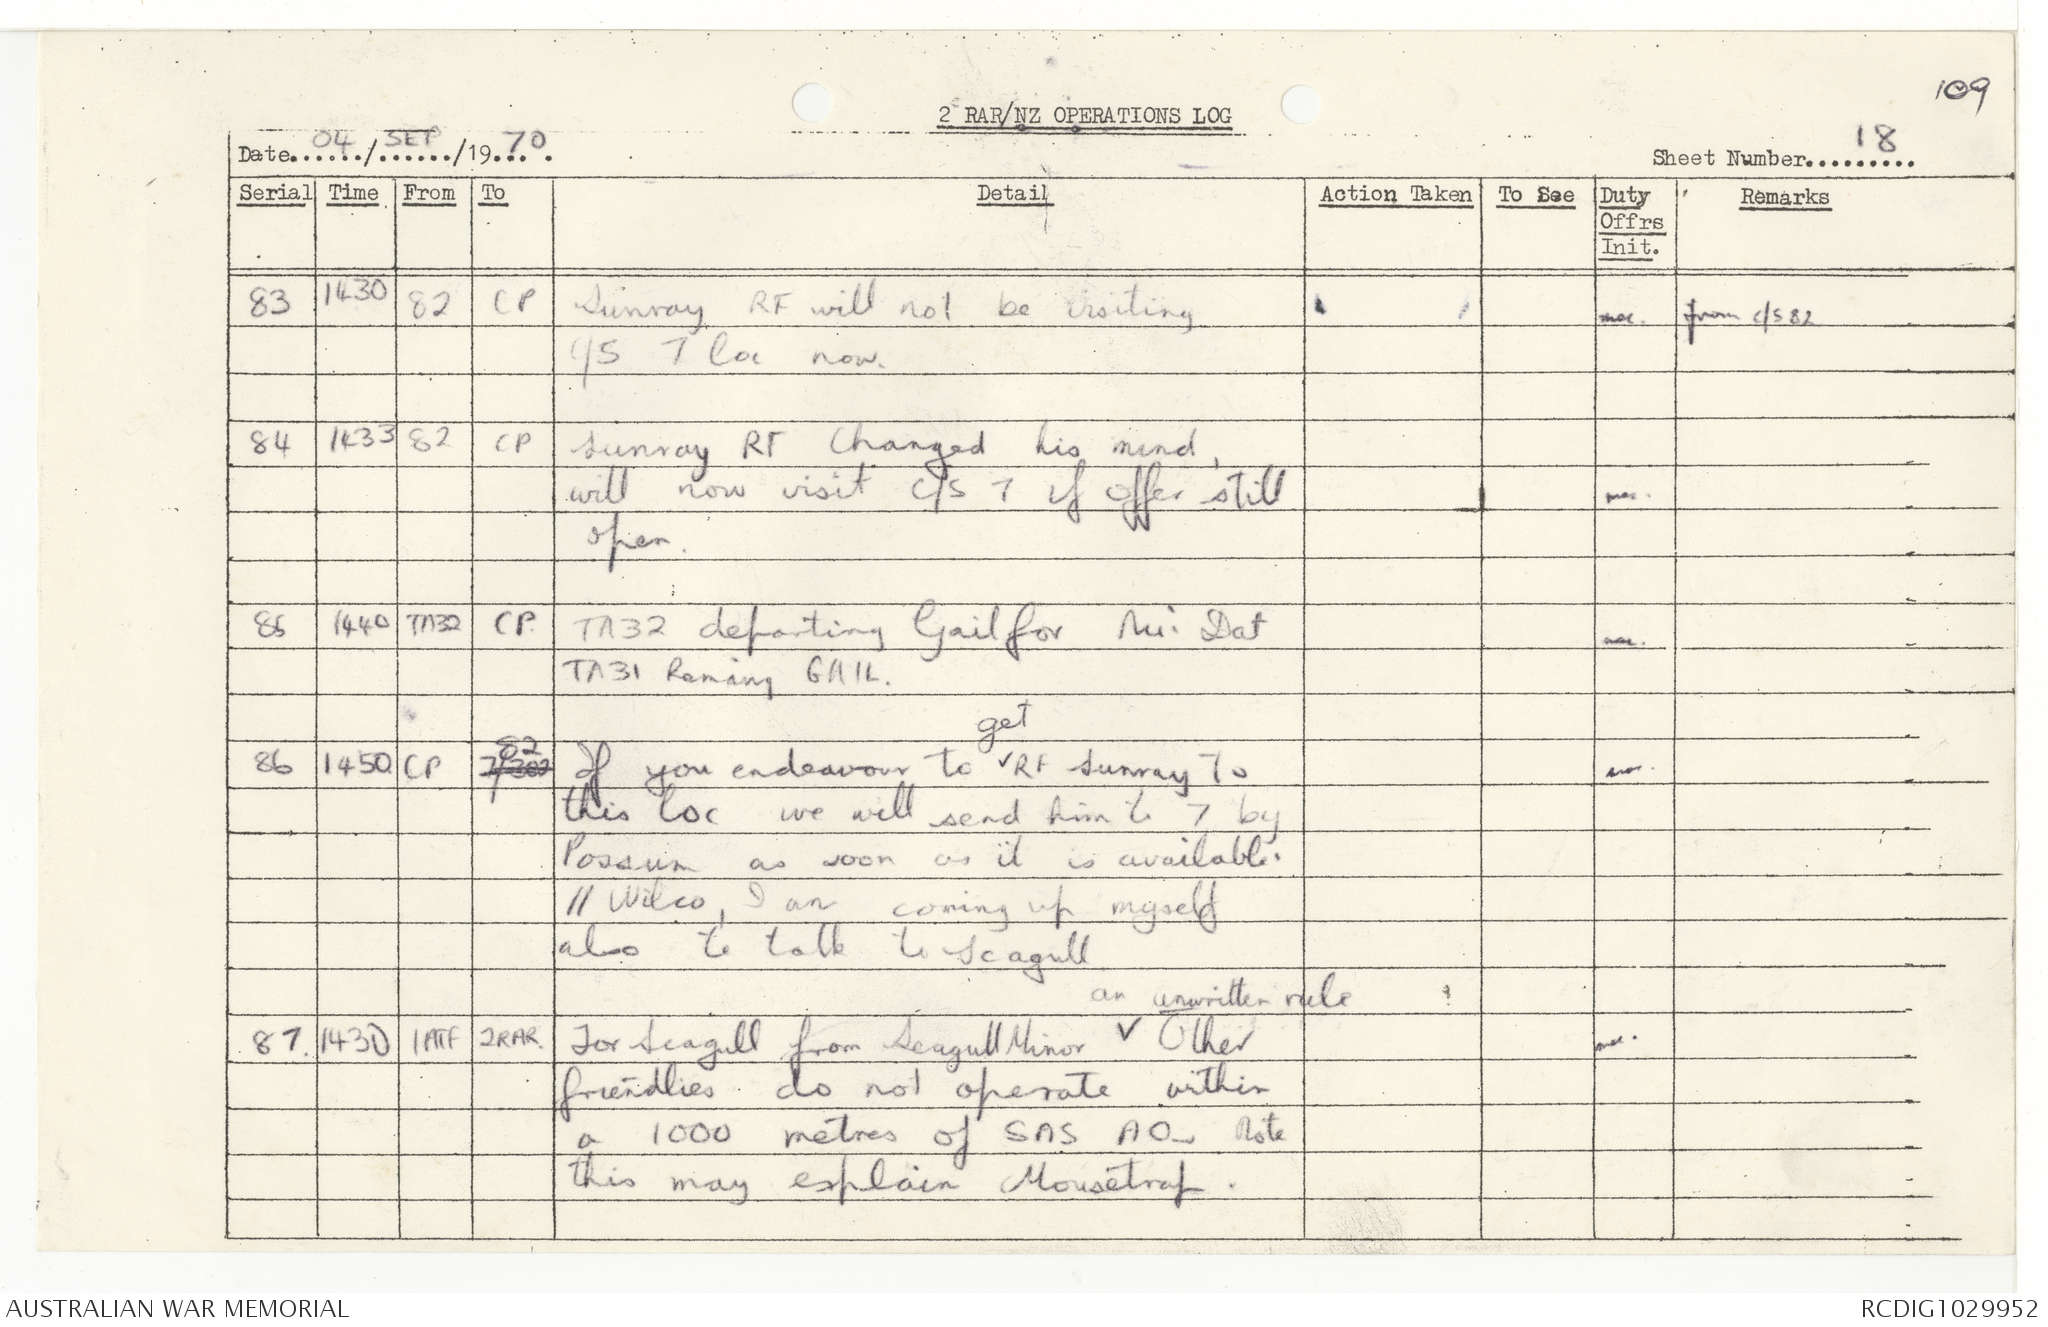 109
2 RAR/NZ OPERATIONS LOG
Date 04/SEP/1970.
Sheet Number 18
Serial Time From To Detail Action Taken To See Duty Offrs Init. Remarks
83 1430 82 CP Sunray RF will not be visiting mac. from c/s 82
C/S 7 loc now.
84 1433 82 CP Sunray RF changed his mind,
will now visit C/S 7 if offer still mac.
open.
85 1440 TA32 CP. TA32 departing Gail for Nui Dat mac.
TA31 Remaing GAIL.
get
82
86 1450 CP If you endeavour to ✓ RF Sunray To mac.
this loc we will send him to 7 by
Possum as soon as it is available.
// Wilco, I am coming up myself
also to talk to Seagull
an unwritten rule
87. 1430 1ATF 2RAR. For Seagull from Seagull Minor ✓ Other mac.
friendlies do not operate within
a 1000 metres of SAS AO - Note
this may explain Mousetrap.
AUSTRALIAN WAR MEMORIAL
RCDIG1029952